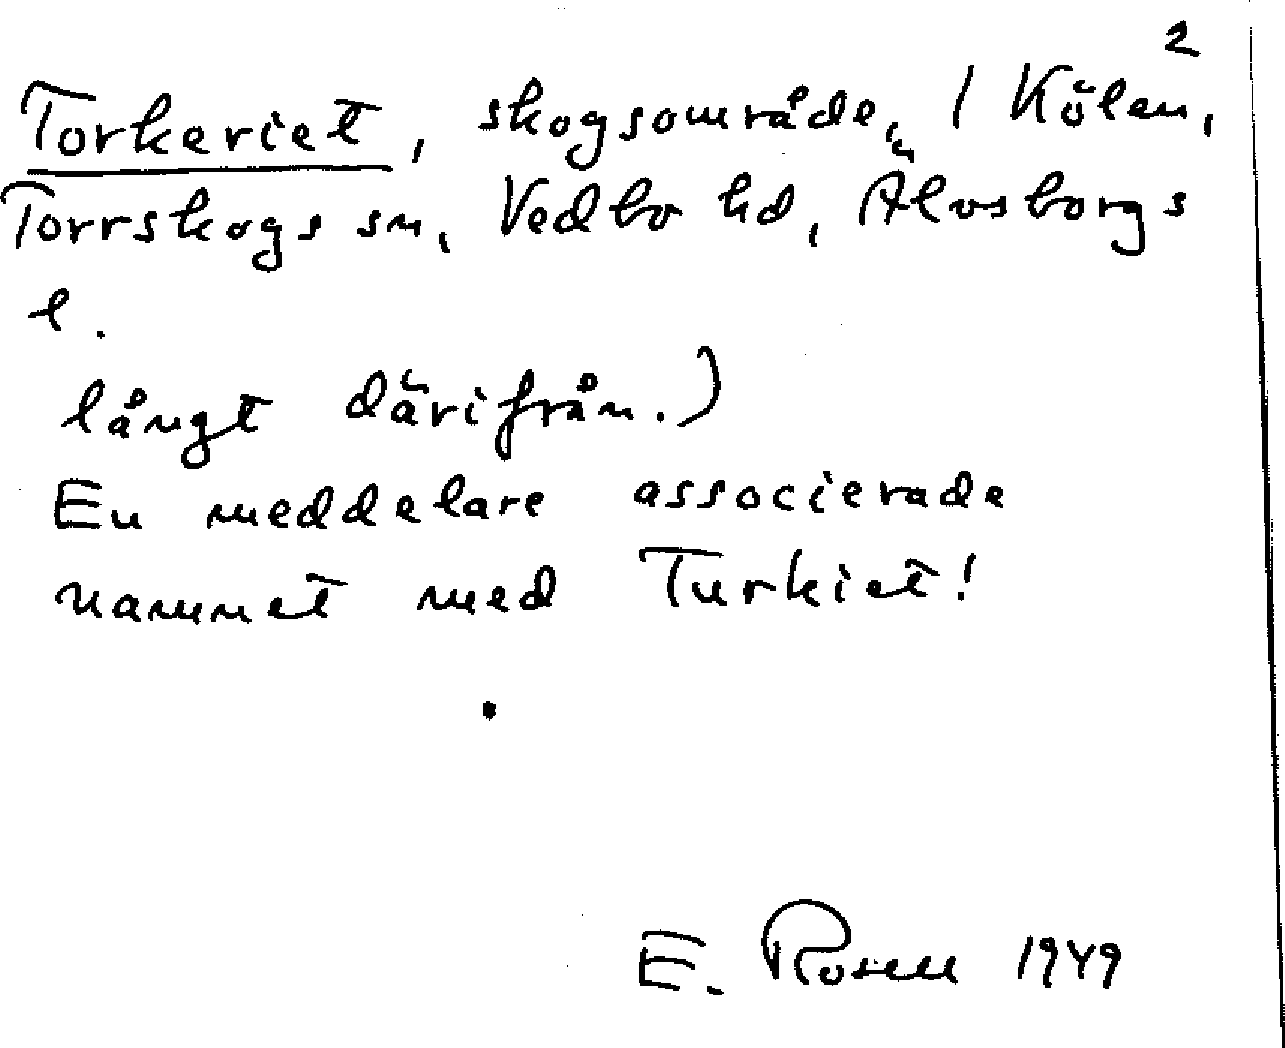 2
Torkeriet, skogsområde, 1 Kölen,
Torrskogs sn, Vedbo hd, Älvsborgs
l.
långt därifrån.)
En meddelare associerade
namnet med Turkiet!
E. Rosell 1949